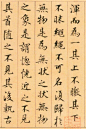 渾而為一其上不皦其下
不昧繩繩不可名復歸於
無物是為無狀之狀無物
之象是謂忽恍迎之不見
其首隨之不見其後執古